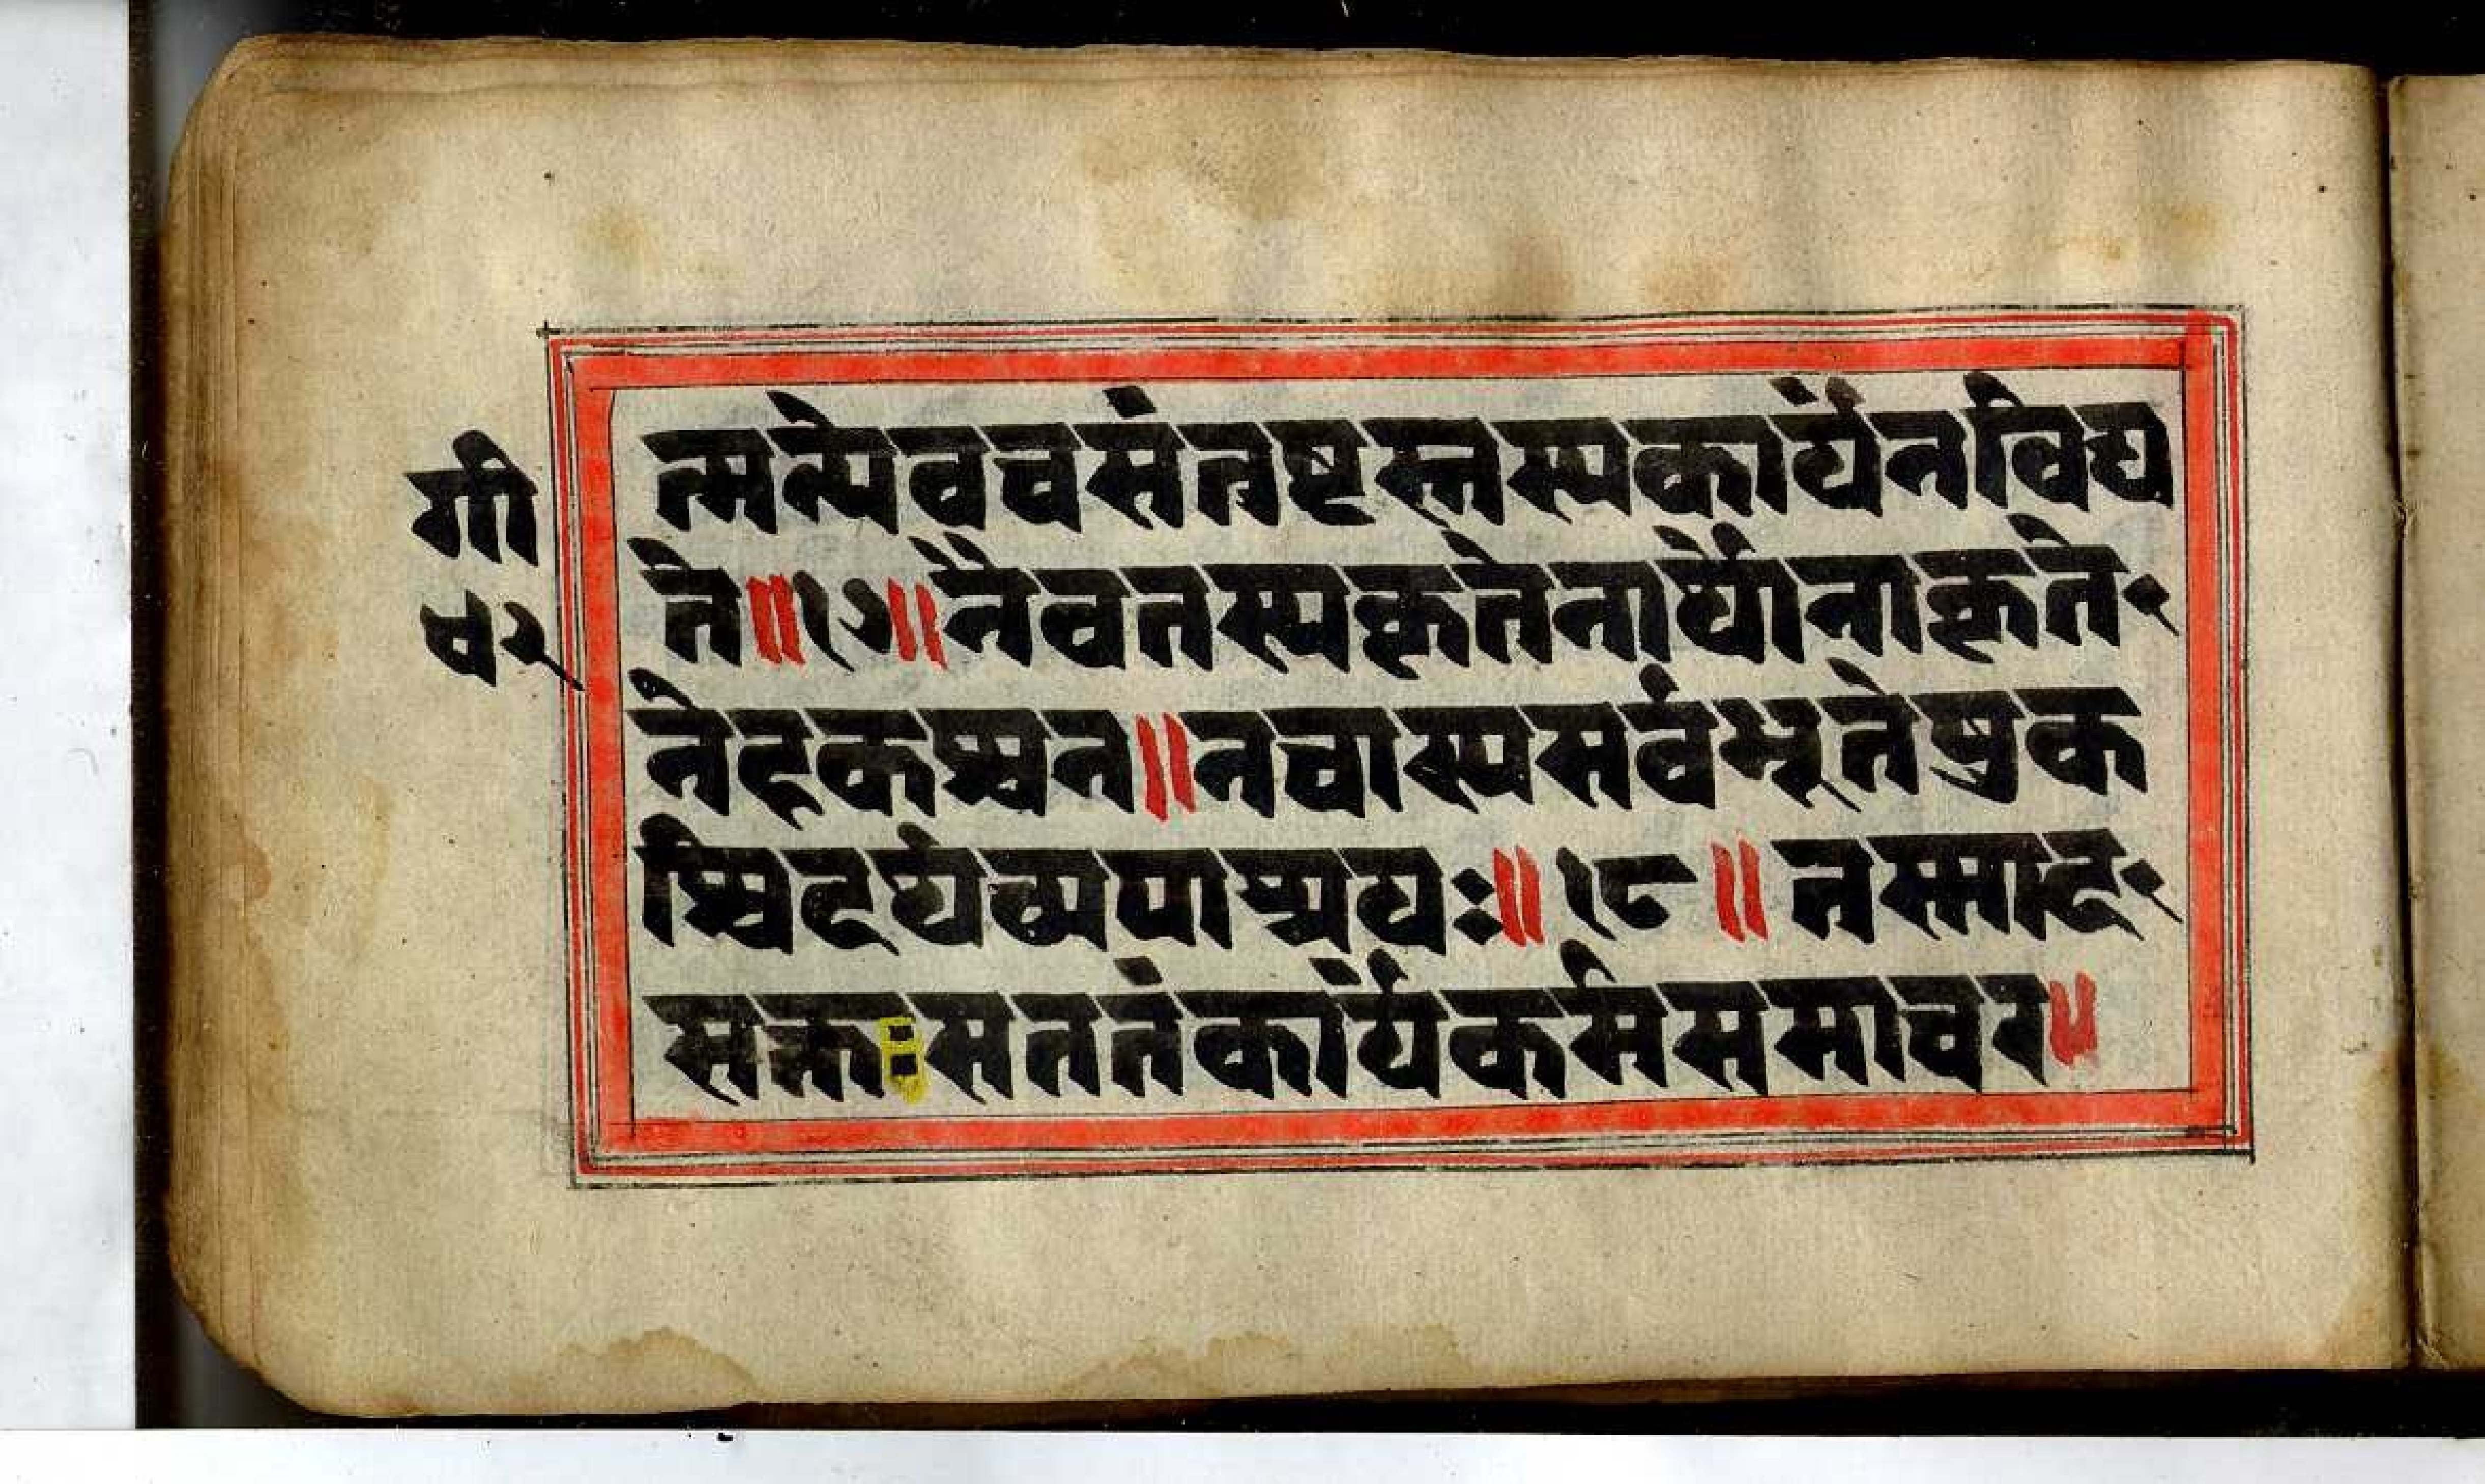 गी
व२
त्मन्येवचसंतष्टस्तस्यकार्यंनविद्य
ते॥१७॥नैवतस्यकृतेनार्थोनाकृते
नेहकश्चन॥नचास्यसर्वभूतेषुक
श्चिदर्थव्यपाश्रयः॥१८॥तस्माद
सक्तःसततंकार्यंकर्मसमाचर॥